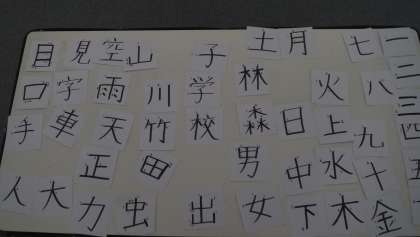 目 見 空 山 子 土 月 七 一
口 字 雨 川 学 林 火 八 二
手 車 天 竹 校 森 日 上 九 三
正 田 男 中 水 十 四
人 大 力 虫 出 女 下 木 金 五